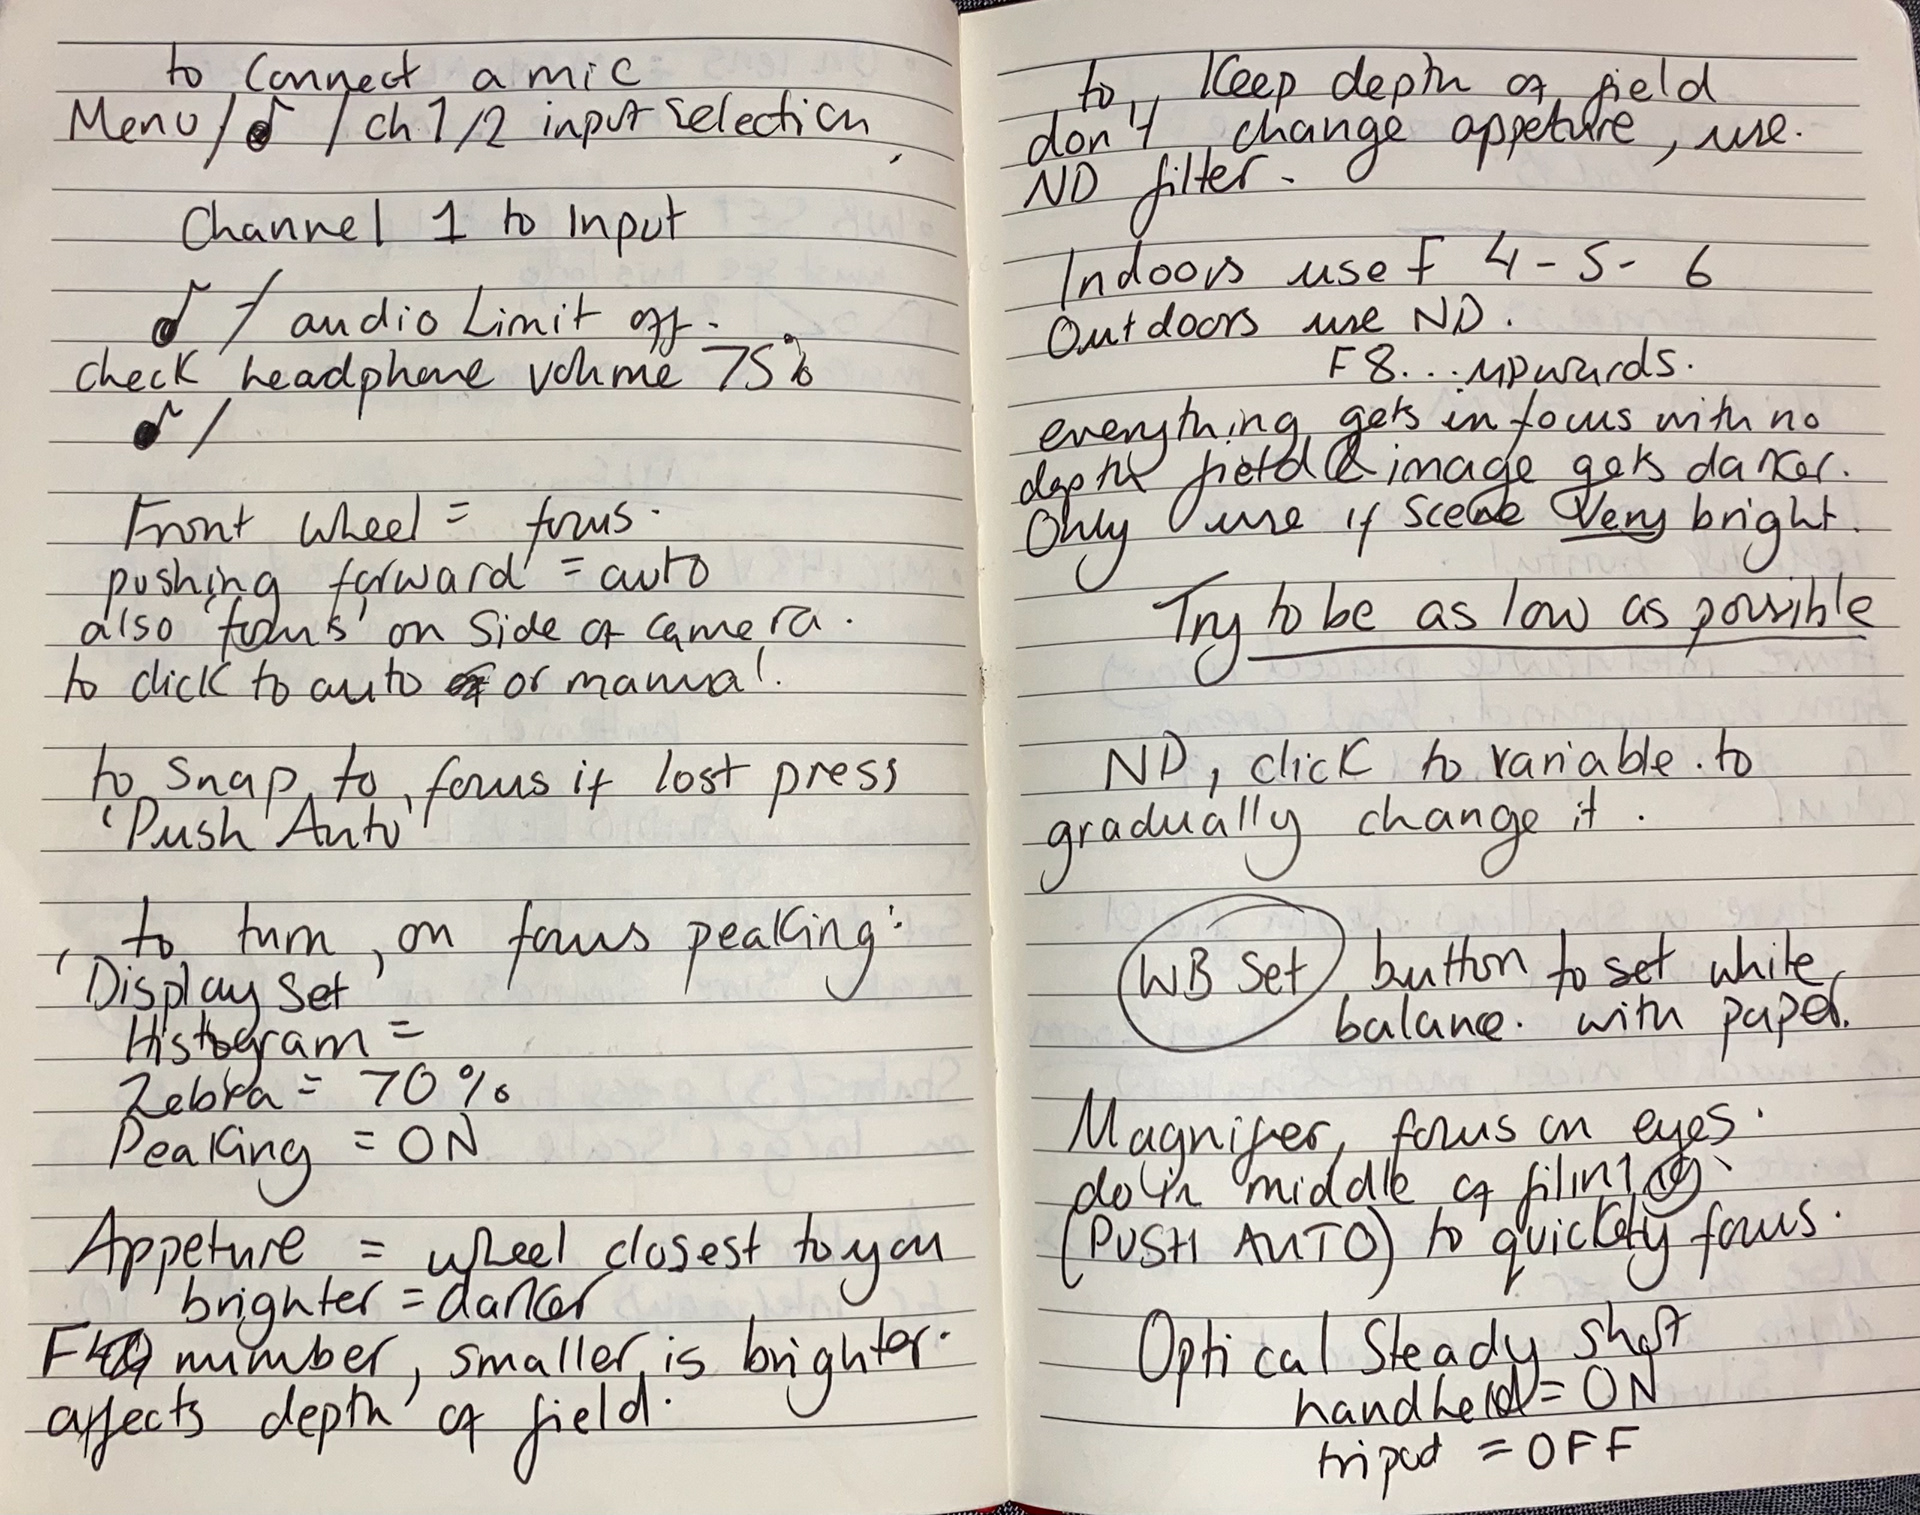 to Connect a mic
Menu / ♪ / ch 1/2 input selection
Channel 1 to Input
♪ / audio Limit off.
check headphone volume 75%
♪ /
Front wheel = focus.
pushing forward = auto
also 'focus' on side of camera.
to click to auto or manual.
to snap to focus if lost press
'Push Auto'
to turn on focus peaking:
'Display Set'
Histogram =
Zebra = 70%
Peaking = ON
Appeture = wheel closest to you
brighter = darker
F number, smaller is brighter.
affects depth of field.
to keep depth of field
don't change appeture, use.
ND filter.
Indoors use F 4-5-6
Outdoors use ND.
F8... upwards.
everything gets in focus with no
depth field & image gets darker.
Only use if scene Very bright.
Try to be as low as possible
ND, click to variable. to
gradually change it.
WB Set button to set white
balance. with paper.
Magnifer, focus on eyes.
do in middle of
(PUSH AUTO) to quickly focus.
Optical Steady shot
handheld = ON
tripod = OFF